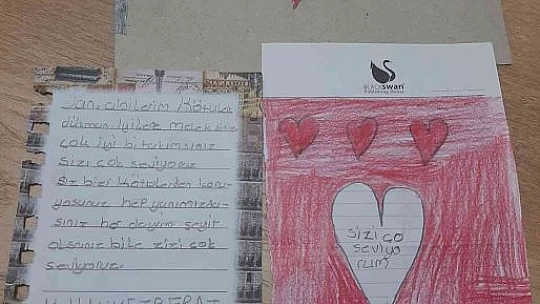 Jandarmalerim kötülere
düşman iyilere meleksiniz
çok iyi bir takımsınız
sizi çok seviyoruz
siz bizi kötülerden koru-
yosunuz hep yanımızda-
sınız her dayim şeyit
olsanız bile zizi çok
seviyoruz.
BLACKswan
Publishing House
sizi ço
seviyo
rum